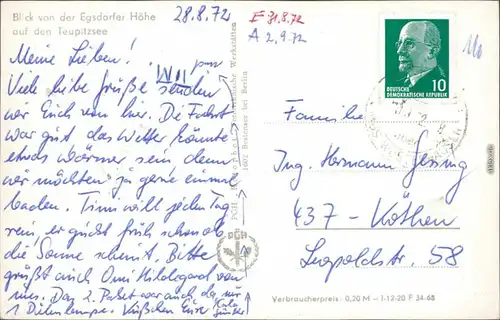 Blick von der Egsdorfer Höhe
auf den Teupitzsee
28.8.72
E 31.8.72
A 2.9.72
Meine Lieben!
Viele liebe Grüße senden
wir Euch von hier. Die Fahrt
war gut das Wetter könnte
etwas wärmer sein denn
wir möchten ja gerne einmal
baden. Timi will jeden Tag
rein, er guckt früh schon ob
die Sonne scheint. Bitte
grüßt auch Omi Hildegard von
uns. Das 2. Paket war auch da nur
1 Dilenlampe. Küßchen Eure
PGH
1602 Bestensee bei Berlin
10
DEUTSCHE
DEMOKRATISCHE REPUBLIK
Familie
Ing. Hermann Jesing
437 - Köthen
Leopoldstr. 58
Verbraucherpreis: 0,20 M – I-12-20 F 34-68